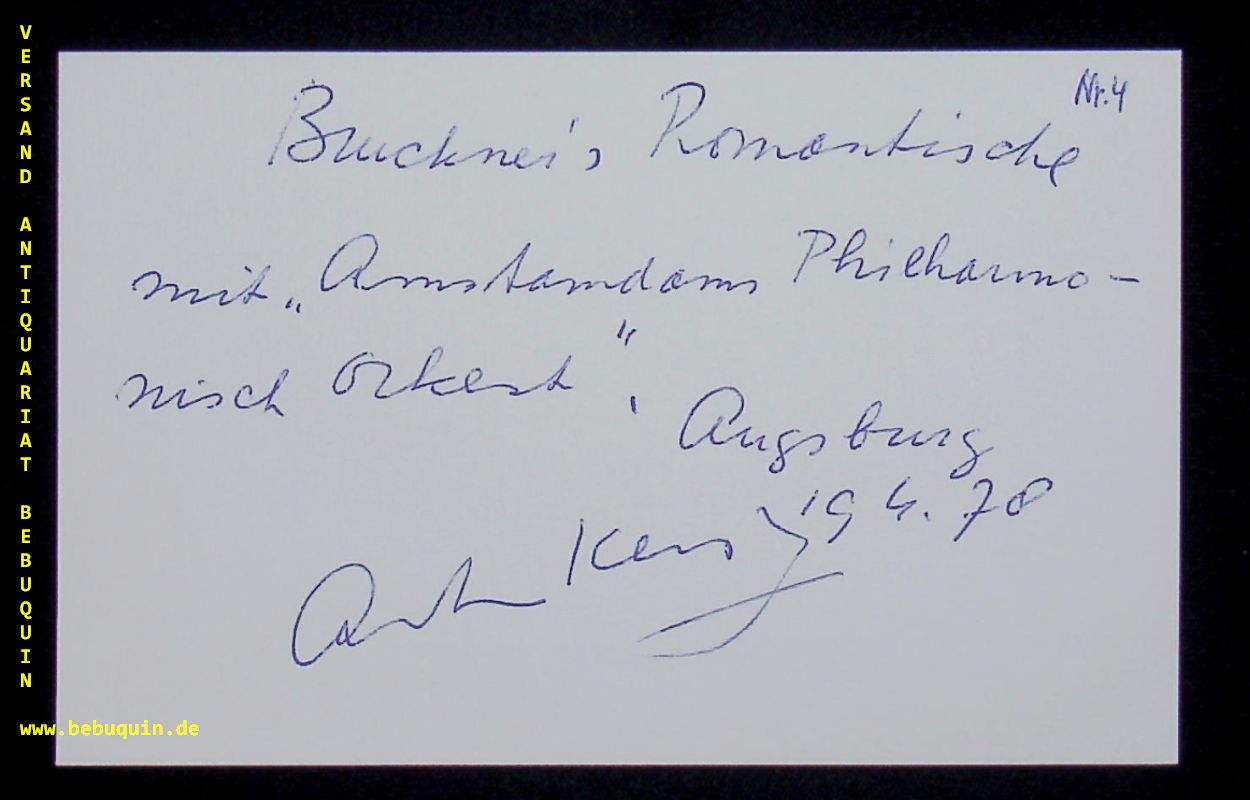 VERSAND ANTIQUARIAT BEBUQUIN
Nr. 4
Bruckner's Romantische
mit „Amstamdams Philharmo-
nisch Orkest".
Augsburg
19 4. 78
Anton Kersj
www.bebuquin.de